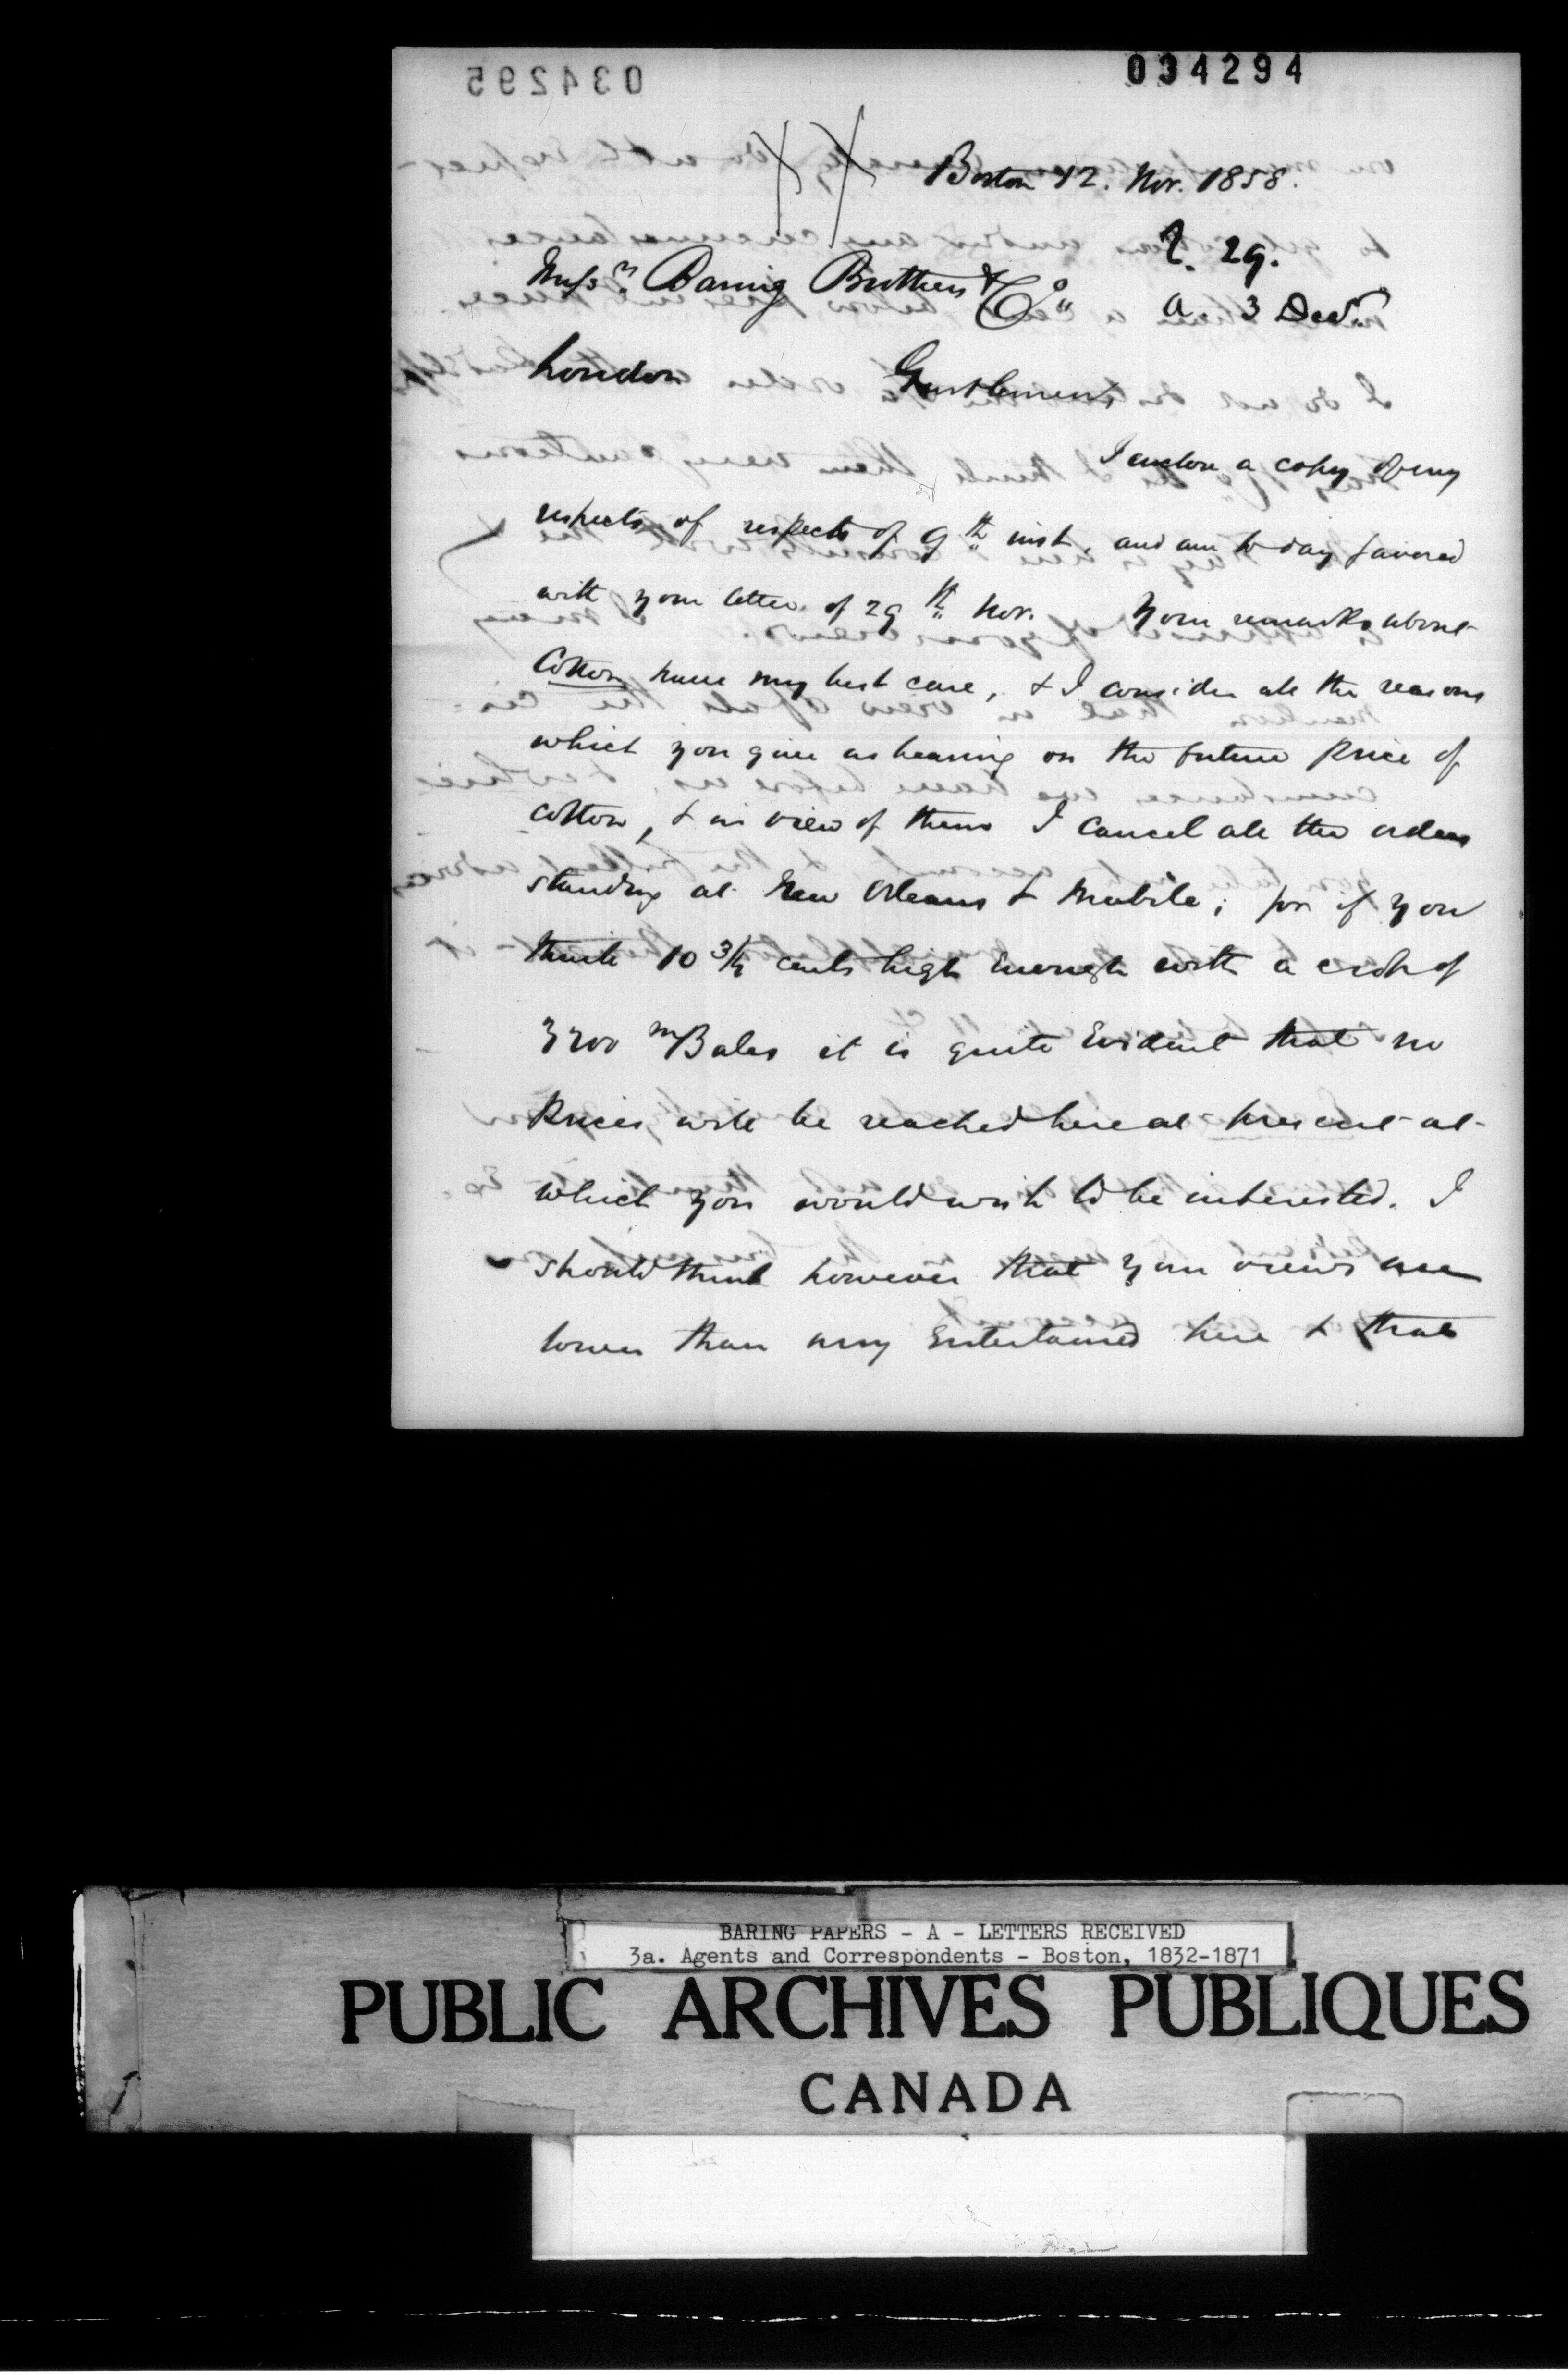 034295
034294
Boston 12. Nov. 1858.
R. 29.
Messrs Baring Brothers & Co
a 3 Decr.
London
Gentlemen,
I enclose a copy of my
respects of respects of 9th inst. and am to day favored
with your letter of 29th Nov. Your remarks about
Cotton have my best care, & I consider all the reasons
which you give as bearing on the future price of
cotton, & in view of them I cancel all the orders
standing at New Orleans & Mobile; for if you
think 10 3/4 cents high enough with a crop of
3200 m Bales it is quite evident that no
prices will be reached here at present at
which you would wish to be interested. I
should think however that your views are
lower than any entertained here & that
BARING PAPERS - A - LETTERS RECEIVED
3a. Agents and Correspondents - Boston, 1832-1871
PUBLIC ARCHIVES PUBLIQUES
CANADA